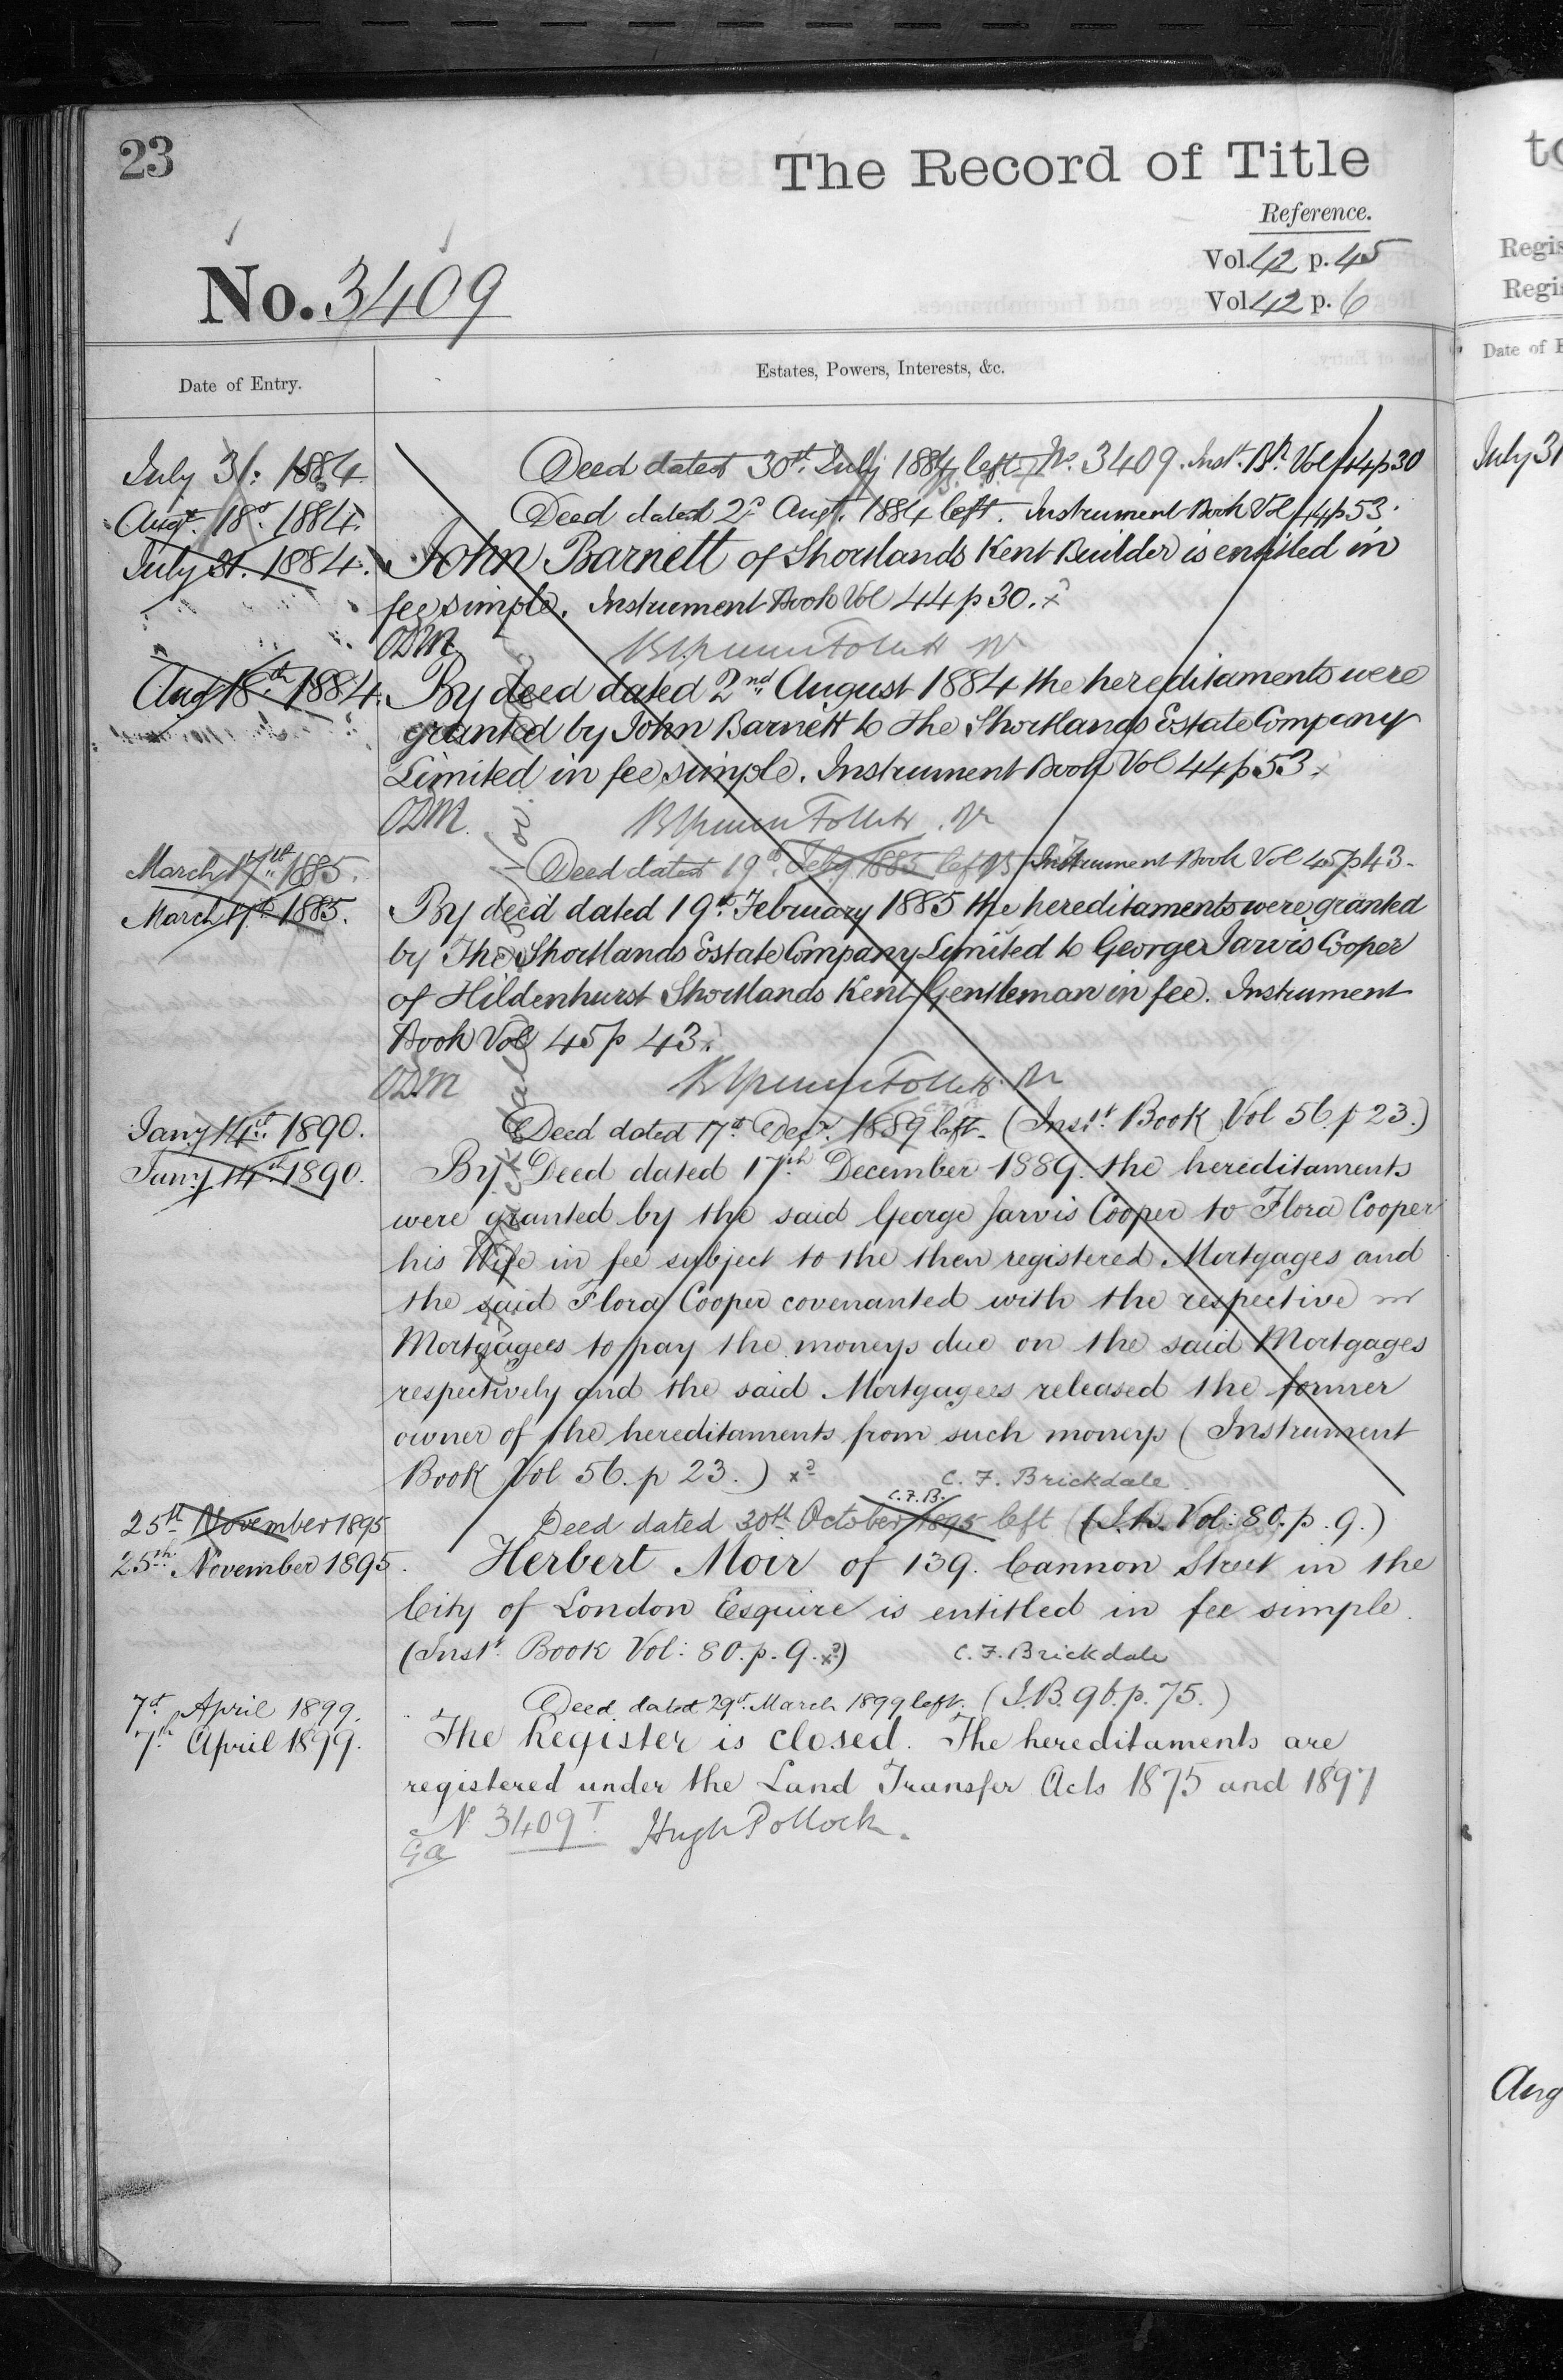 23
The Record of Title
Reference.
Vol. 42 p. 45
Vol. 42 p. 6
No. 3409
Date of Entry.
Estates, Powers, Interests, &c.
July 31. 1884 Deed dated 30th July 1884 left No. 3409. Inst. Bk Vol 44 p 30
Augt. 18th 1884. Deed dated 2d Augt. 1884 left. Instrument Book Vol 44 p 53.
July 31. 1884. John Barnett of Shortlands Kent Builder is entitled in
fee simple. Instrument Book Vol 44 p 30. x
ODM
Aug 18th 1884. By deed dated 2nd August 1884 the hereditaments were
granted by John Barnett to The Shortlands Estate Company
Limited in fee simple. Instrument Book Vol 44 p 53. x
ODM.
March 17th 1885. Deed dated 19th Feby 1885 left Instrument Book Vol 45 p 43.
March 17th 1885. By deed dated 19th February 1885 the hereditaments were granted
by The Shortlands Estate Company Limited to George Jarvis Cooper
of Hildenhurst Shortlands Kent Gentleman in fee. Instrument
Book Vol 45 p 43.
ODM
Jany 14th 1890. Deed dated 17th Decr. 1889 left. (Inst. Book Vol 56. p 23.)
Jany 14th 1890. By Deed dated 17th December 1889. the hereditaments
were granted by the said George Jarvis Cooper to Flora Cooper
his Wife in fee subject to the then registered Mortgages and
the said Flora Cooper covenanted with the respective
Mortgagees to pay the moneys due on the said Mortgages
respectively and the said Mortgagees released the former
owner of the hereditaments from such moneys (Instrument
Book Vol 56. p 23.) C. F. Brickdale
C.F.B.
25th November 1895 Deed dated 30th October 1895 left (I.B. Vol: 80. p. 9.)
25th November 1895. Herbert Moir of 139. Cannon Street in the
City of London Esquire is entitled in fee simple.
(Inst. Book Vol: 80. p. 9.) C. F. Brickdale
7th April 1899. Deed dated 29th March 1899 left. (I.B. 96. p. 75.)
7th April 1899. The Register is closed. The hereditaments are
registered under the Land Transfer Acts 1875 and 1897
No 3409 Hugh Pollock.
to
Regis
Regis
Date of E
July 31
Aug